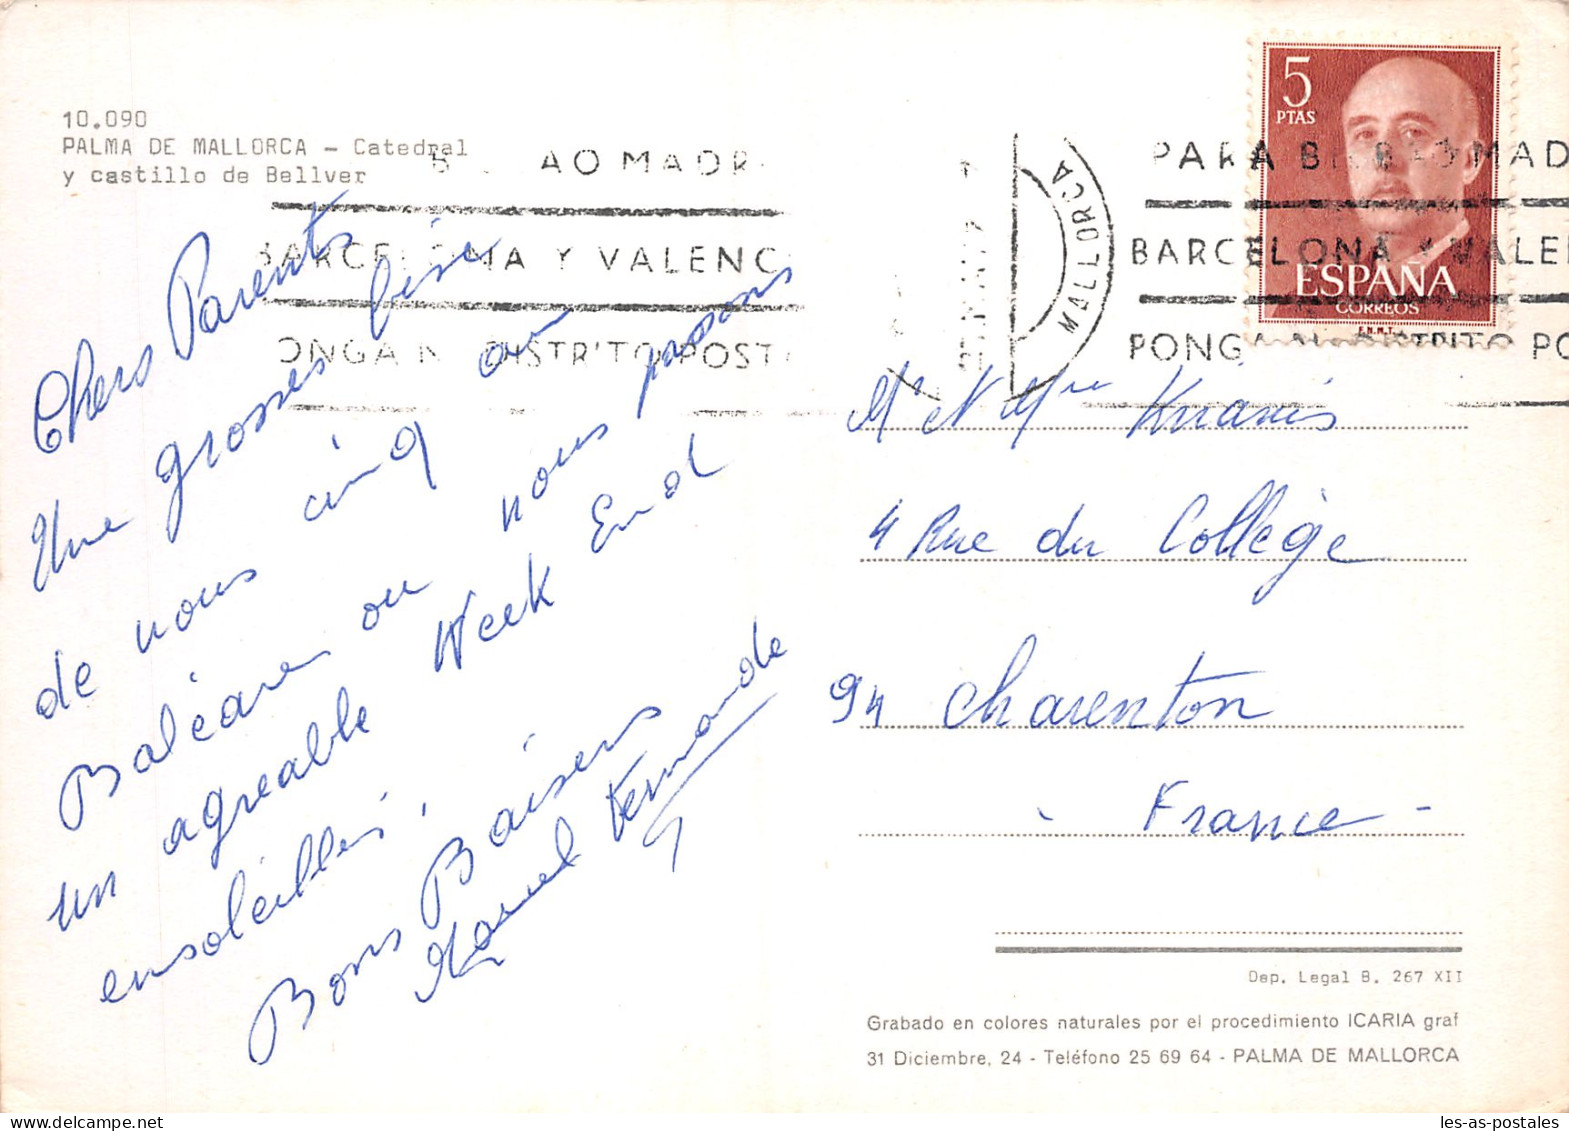 10.090
PALMA DE MALLORCA - Catedral
y castillo de Bellver
5
PTAS
ESPAÑA
CORREOS
F.N.M.T.
AO MADR
BARCELONA Y VALENC
ONGA N DISTRITO POST
MALLORCA
PARA BILBAO MAD
BARCELONA Y VALE
PONGA DISTRITO PO
Chers Parents
Une grosses bise
de nous cinq au
Baléares ou nous passons
un agréable Week End
ensoleillés.
Bons Baisers
Marcel Fernande
Mr et Mme
4 Rue du Collège
94 Charenton
- France -
Dep. Legal B. 267 XII
Grabado en colores naturales por el procedimiento ICARIA graf
31 Diciembre, 24 - Teléfono 25 69 64 - PALMA DE MALLORCA
les-as-postales